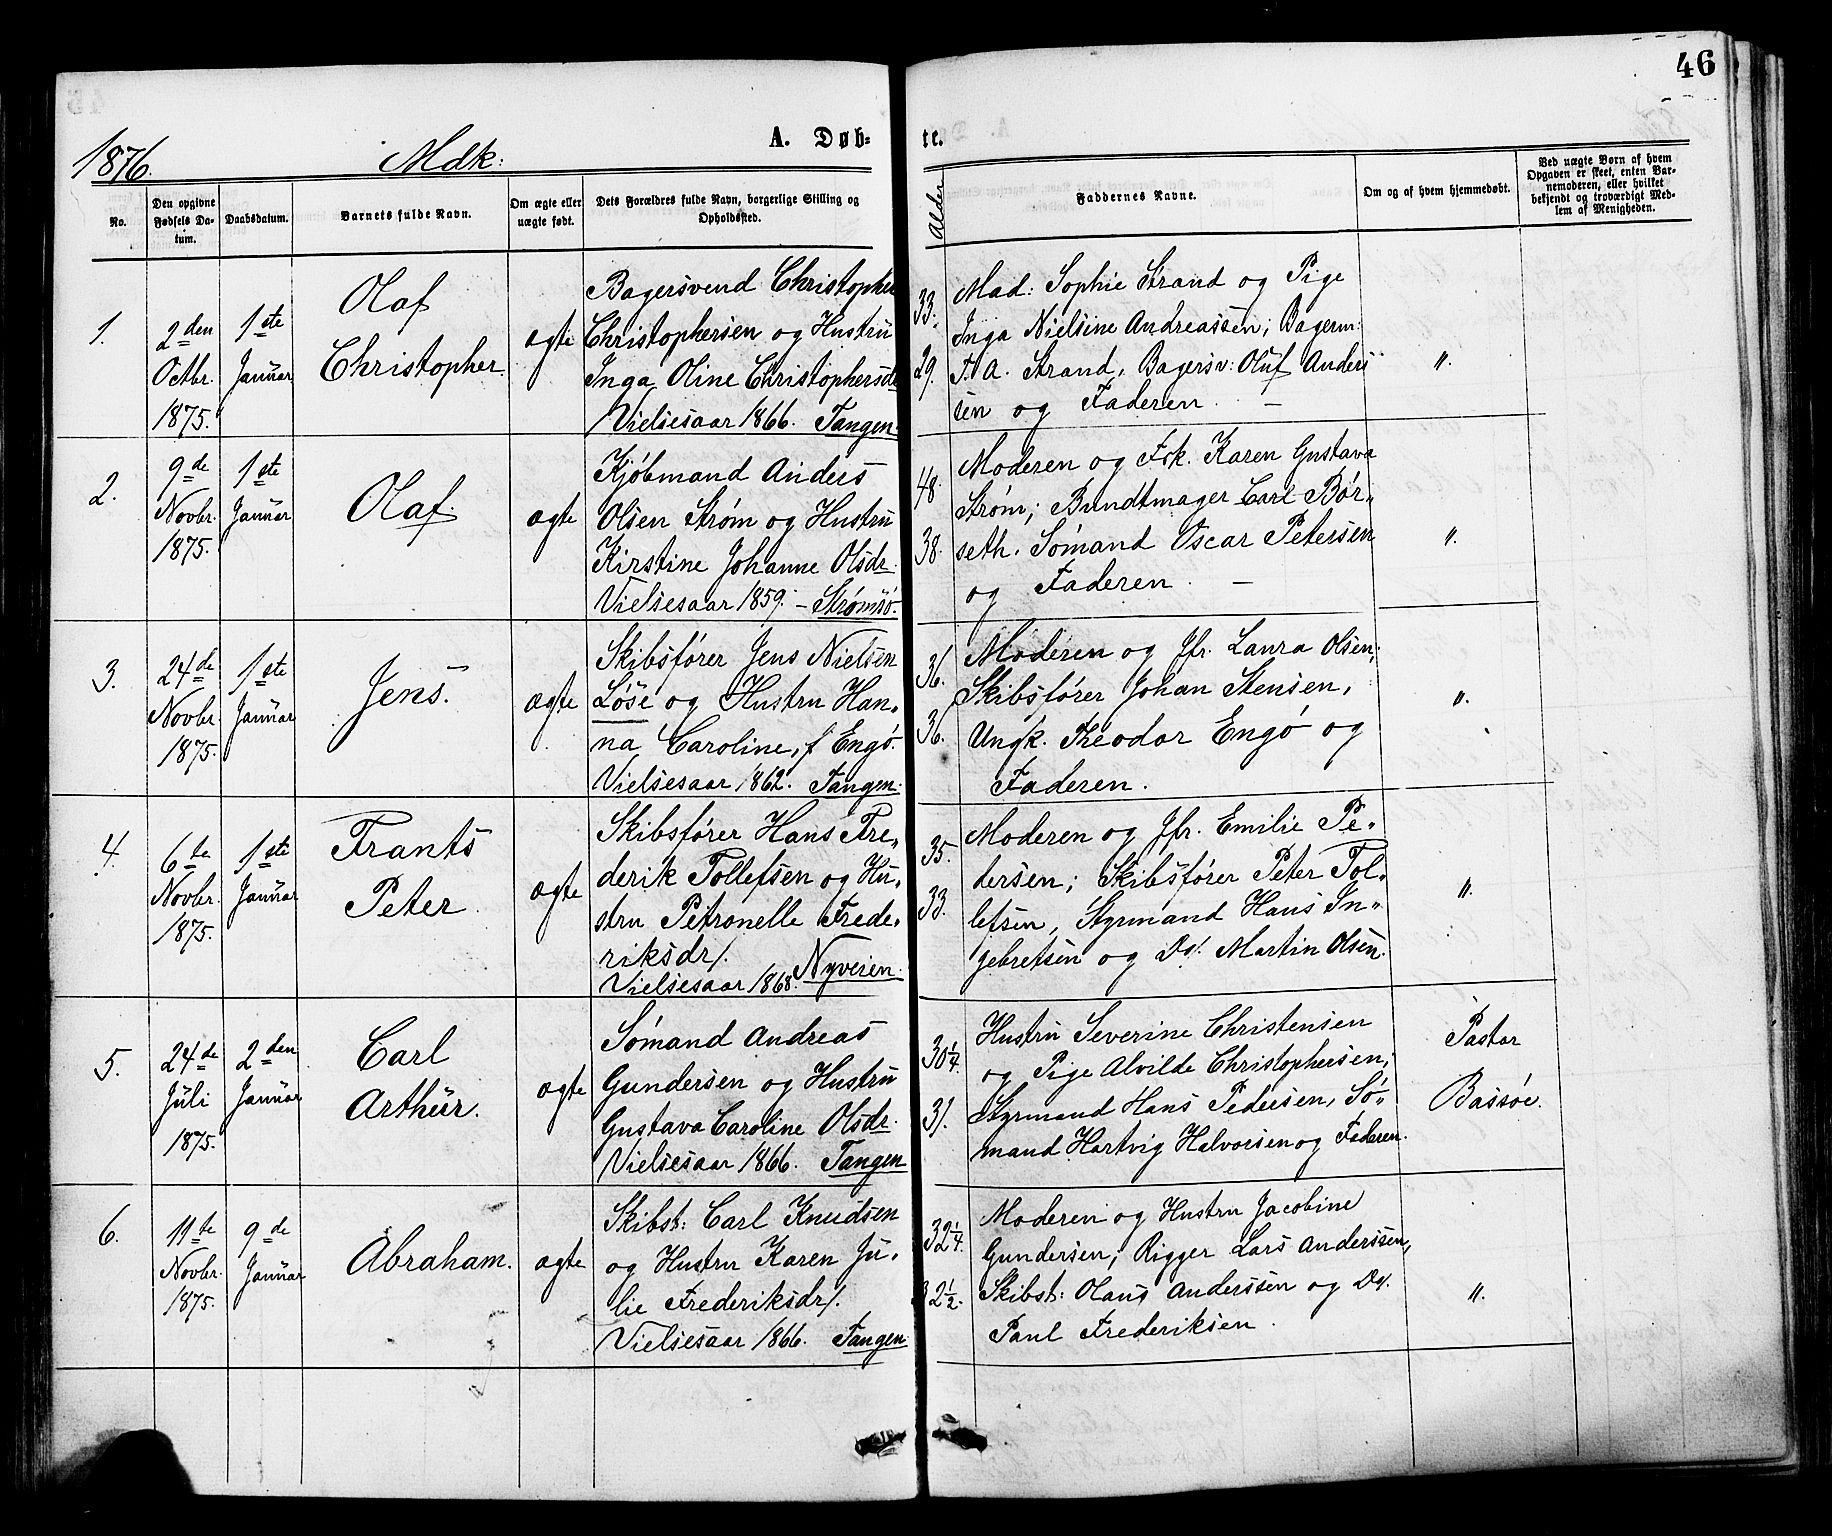 46
1876.
Mdk:
A. Døb-
te.
No.
Den opgivne Fødsels Da-
tum.
Daabsdatum.
Barnets fulde Navn.
Om ægte eller
uægte født.
Dets Forældres fulde Navn, borgerlige Stilling og
Opholdssted.
Alder
Faddernes Navne.
Om og af hvem hjemmedøbt.
Ved uægte Børn af hvem
Opgaven er skeet, enten Bar-
nemoderen, eller hvilket
bekjendt og troværdigt Med-
lem af Menigheden.
1.
2den
Octbr.
1875.
1ste
Januar
Olaf
Christopher.
ægte
Bagersvend Christopher
Christophersen og Hustru
Inga Oline Christophersdr
Vielsesaar 1866. Tangen.
33.
29.
Mad: Sophie Strand og Pige
Inga Nielsine Andreassen; Bagerm:
T. A. Strand, Bagersv: Oluf Anders
sen og Faderen. —
".
2.
9de
Novbr.
1875.
1ste
Januar
Olaf.
ægte
Kjøbmand Anders
Olsen Strøm og Hustru
Kirstine Johanne Olsdr.
Vielsesaar 1859. – Strømsö.
48.
38.
Moderen og Frk. Karen Gustava
Strøm; Bundtmager Carl Bör-
seth. Sömand Oscar Petersen
og Faderen. —
".
3.
24de
Novbr.
1875.
1ste
Januar
Jens.
ægte
Skibsförer Jens Nielsen
Löse og Hustru Han-
na Caroline, f Engö.
Vielsesaar 1862. Tangen.
36.
36.
Moderen og Jfr. Laura Olsen;
Skibsförer Johan Stensen,
Ungk. Theodor Engö og
Faderen.
".
4.
6te
Novbr.
1875.
1ste
Januar
Frants
Peter.
ægte
Skibsförer Hans Fre-
derik Tollefsen og Hu-
stru Petronelle Frede-
riksdr/.
Vielsesaar 1868. Nyveien.
35.
33.
Moderen og Jfr. Emilie Pe-
dersen; Skibsförer Peter Tol-
lefsen, Styrmand Hans In-
gebretsen og Do/. Martin Olsen.
".
5.
24de
Juli
1875.
2den
Januar
Carl
Arthur.
ægte
Sömand Andreas
Gundersen og Hustru
Gustava Caroline Olsdr.
Vielsesaar 1866. Tangen
30¼.
31.
Hustru Severine Christensen
og Pige Alvilde Christophersen;
Styrmand Hans Pedersen, Sö-
mand Hartvig Halvorsen og Faderen.
Pastor
Bassöe.
6.
11te
Novbr.
1875.
9de
Januar
Abraham.
ægte
Skibst: Carl Knudsen
og Hustru Karen Ju-
lie Frederiksdr/.
Vielsesaar 1866. Tangen
32¼.
32½.
Moderen og Hustru Jacobine
Gundersen; Rigger Lars Anderssen,
Skibst: Olaus Anderssen og Do/.
Paul Frederiksen.
".